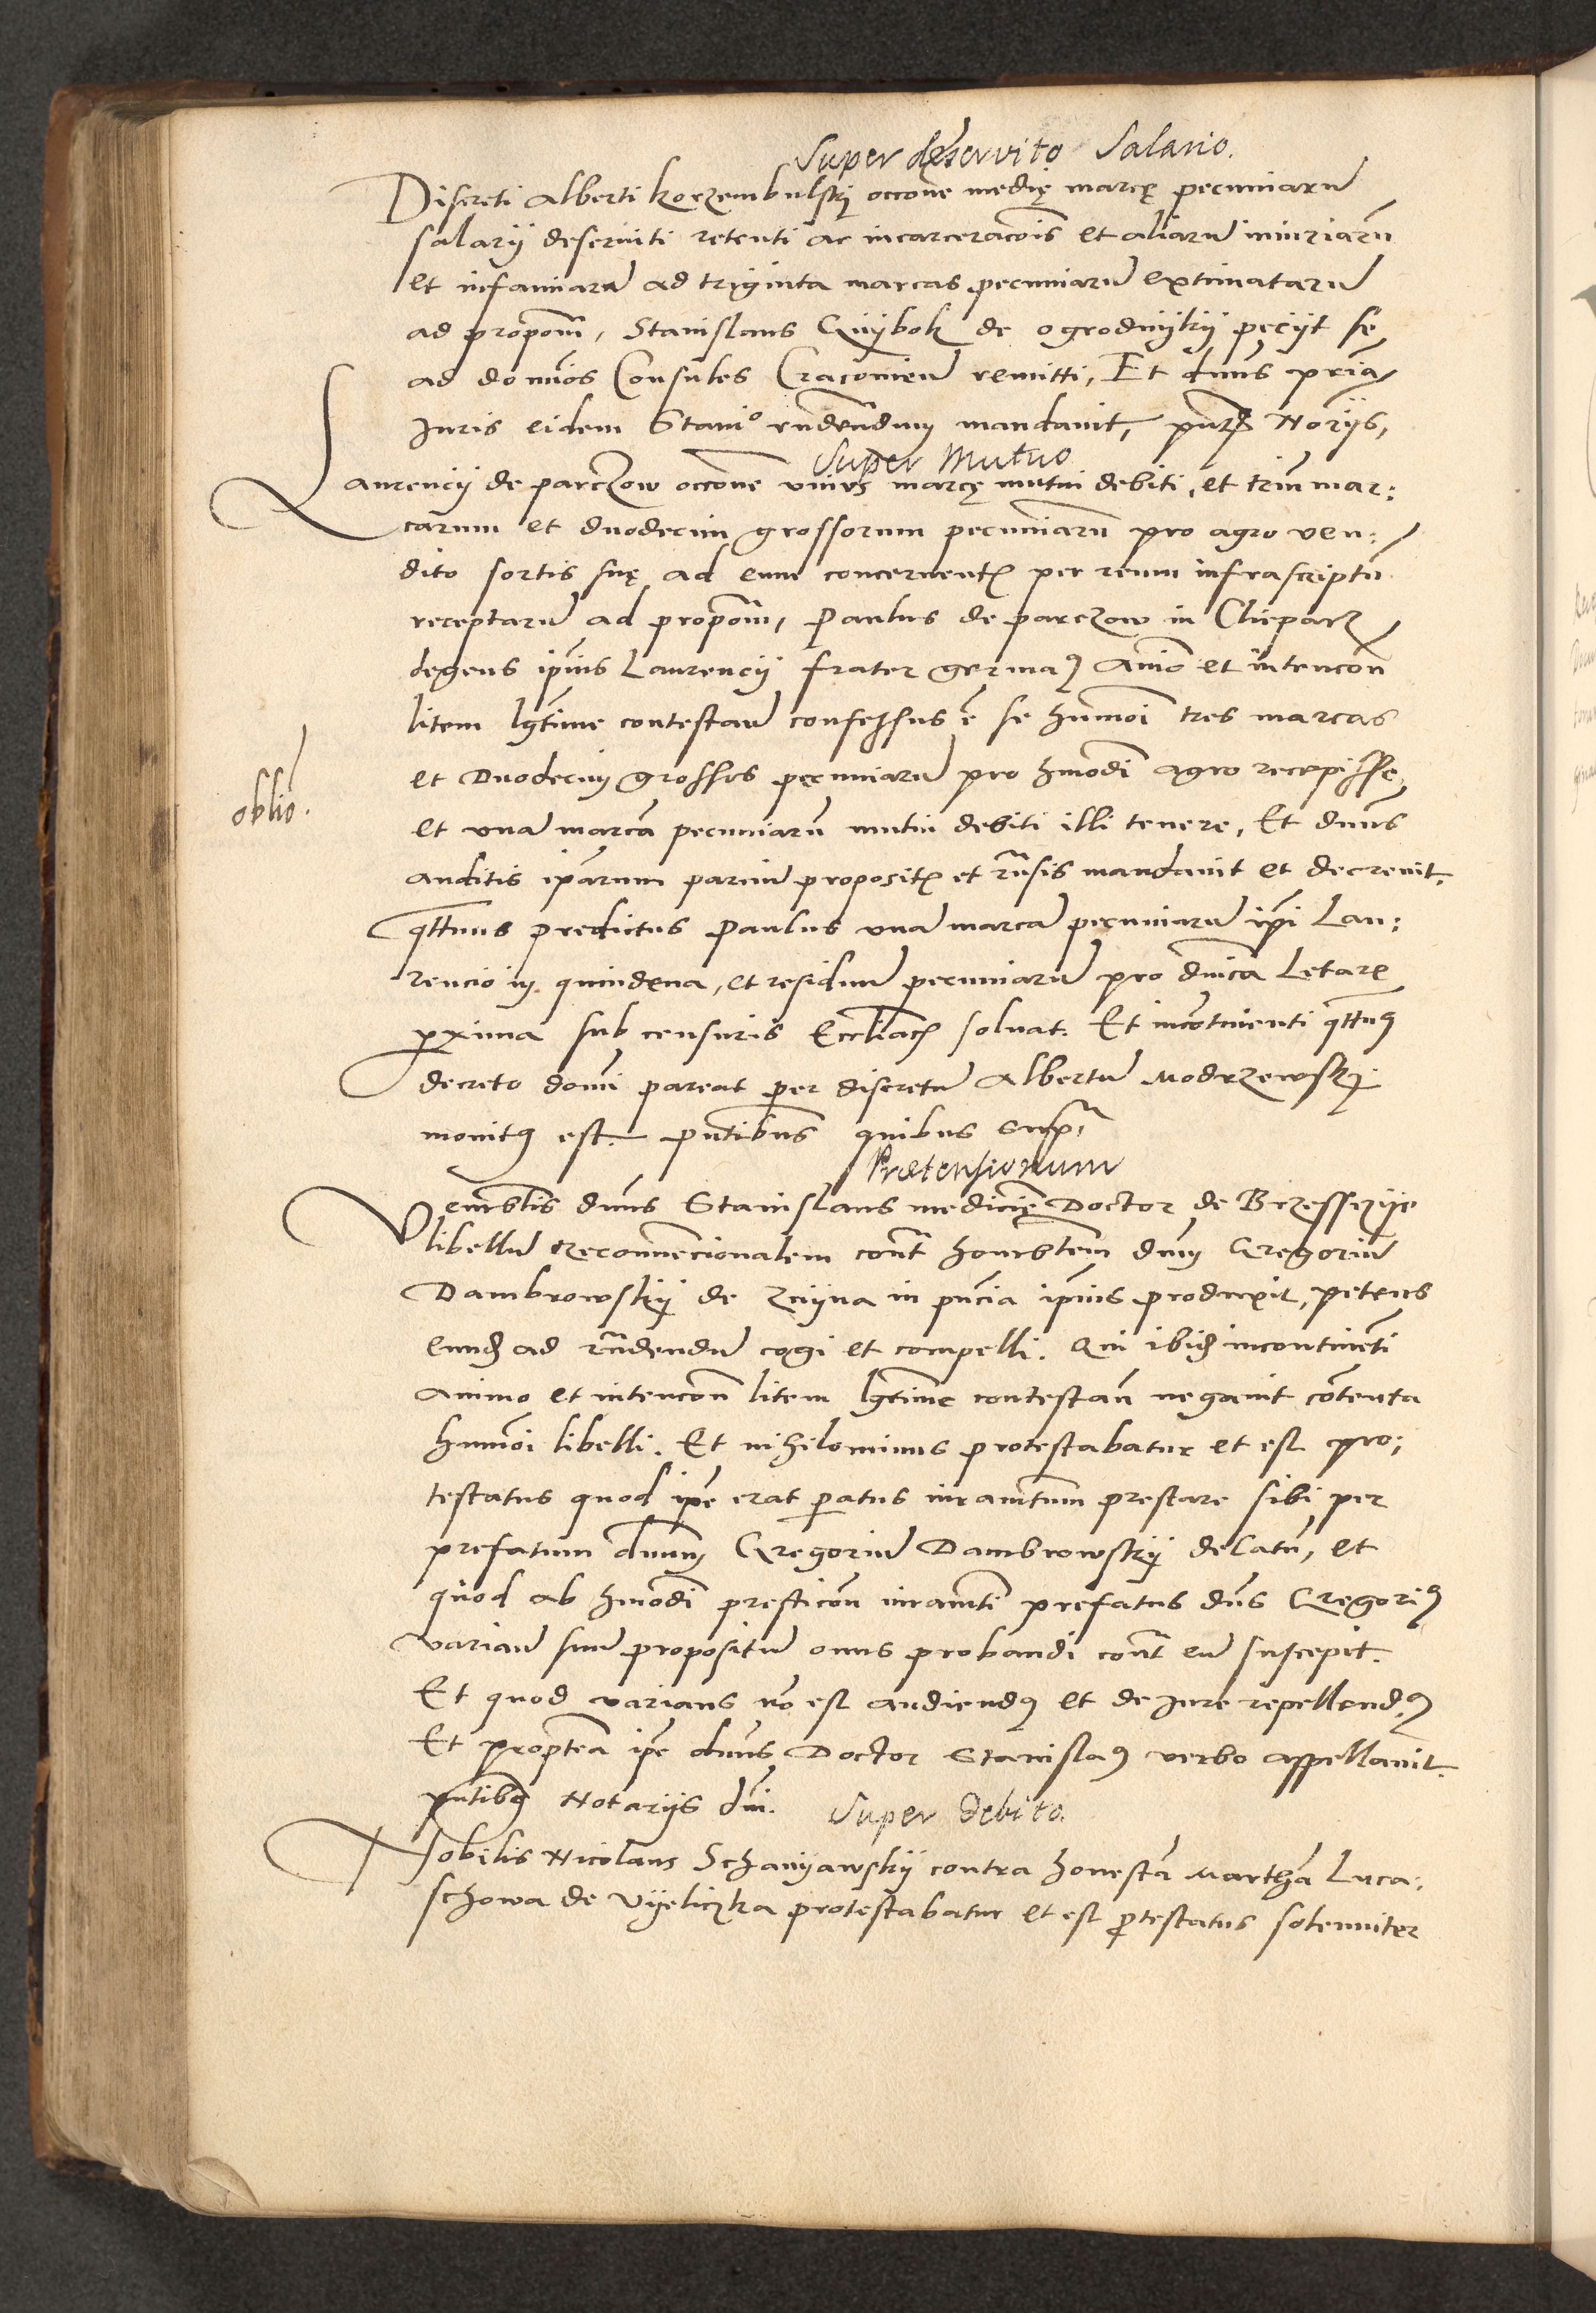 Super deservito Salario.
Discreti Alberti Korzembulskj occone medię marcę pecuniarū
salarij deserviti retenti ac incarceracois et aliarū iniuriarū
et infamiarū ad triginta marcas pecuniarū extimatarū
ad propom, Stanislaus de ogrodnijkij pecijt se
ad dominos Consules Cracovien remitti, Et dnus
Iuris eidem Stanio rndendum mandavit, Norijs,
Super Mutuo
Laurencij de parczow occone unius marcę mutui debiti, et trium mar:
carum et duodecim grossorum pecuniarū pro agro ven:
dito sortis suę ad eum concernent per reum infrascriptū
receptarū ad propom, Paulus de parczow in Cleparz
degens ipius Laurencij frater germa9 Animo et intencon
litem lgtime contestan confessus ē se humoi tres marcas
et Duodecim grossos pecuniarū pro hmodi agro recepisse
oblio.
et una marcā pecuniarū mutui debiti illi tenere, Et dnus
auditis iparum parcium proposit et rnsis mandavit et decrevit.
qttnus predictus Paulus una marca pecuniarū ipi Lau:
rencio in quindena, et residuū pecuniarū pro dnica Letare
proxima sub censuris Eccliac solvat. Et incotinenti qttn9
decreto domi pareat per discretū Albertū Modrzewskj
monit9 est. pntibus quibus supra
Prætensionum
Venrblis dnus Stanislaus medicię Doctor de Brzessczije
libellū Reconvencionalem cont honrbilem dnm Gregoriū
Dambrowskij de in pncia ipius produxit, petens
eund ad rndendū cogi et compelli. Qui ibid incontineti
animo et intencon litem lgtime contestan negavit cotenta
humoi libelli. Et nihilominus protestabatur et est pro:
testatus quod ipe erat paratus iuramtum prestare sibi per
prefatum dnum Gregoriū Dambrowskij delatū, et
quod ab hmodi presticon iuramti prefatus dns Gregori9
varian suū propositū onus probandi cont eū suscepit.
Et quod varians no est audiend9 et de Iure repellend9
Et proptea ipe dnus Doctor Stanisla9 verbo appellavit.
pntib9 Notarijs dni.
Super Debito.
Nobilis Nicolaus Schanijawskij contra honestā Marthā Luca:
schowa de Vijeliczka protestabatur et est protestatus solenniter